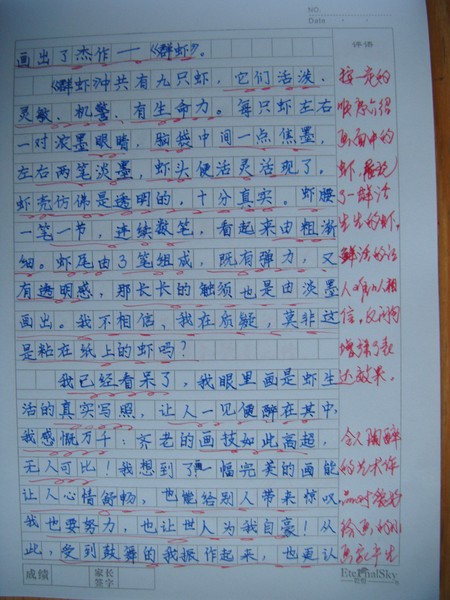 NO.
Date
评语
画出了杰作——《群虾》。
《群虾》中共有九只虾，它们活泼、
灵敏、机警、有生命力。每只虾左右
一对浓墨眼睛，脑袋中间一点焦墨，
左右两笔淡墨，虾头便活灵活现了，
虾壳仿佛是透明的，十分真实。虾腰
一笔一节，连续数笔，看起来由粗渐
细。虾尾由3笔组成，既有弹力，又
有透明感，那长长的触须也是由淡墨
画出。我不相信、我在质疑，莫非这
是粘在纸上的虾吗？
我已经看呆了，我眼里画是虾生
活的真实写照，让人一见便醉在其中，
我感慨万千：齐老的画技如此高超，
无人可比！我想到了一幅完美的画能
让人心情舒畅，也能给别人带来惊叹，
我也要努力，也让世人为我自豪！从
此，受到鼓舞的我振作起来，也更认
按一定的
顺序介绍
画面中的
虾，
了一群活
生生的虾。
鲜活的
人难以相
信，反问句
增强了表
达效果。
令人陶醉
的艺术作
品
绘画的小
画家
成绩
家长
签字
EternalSky